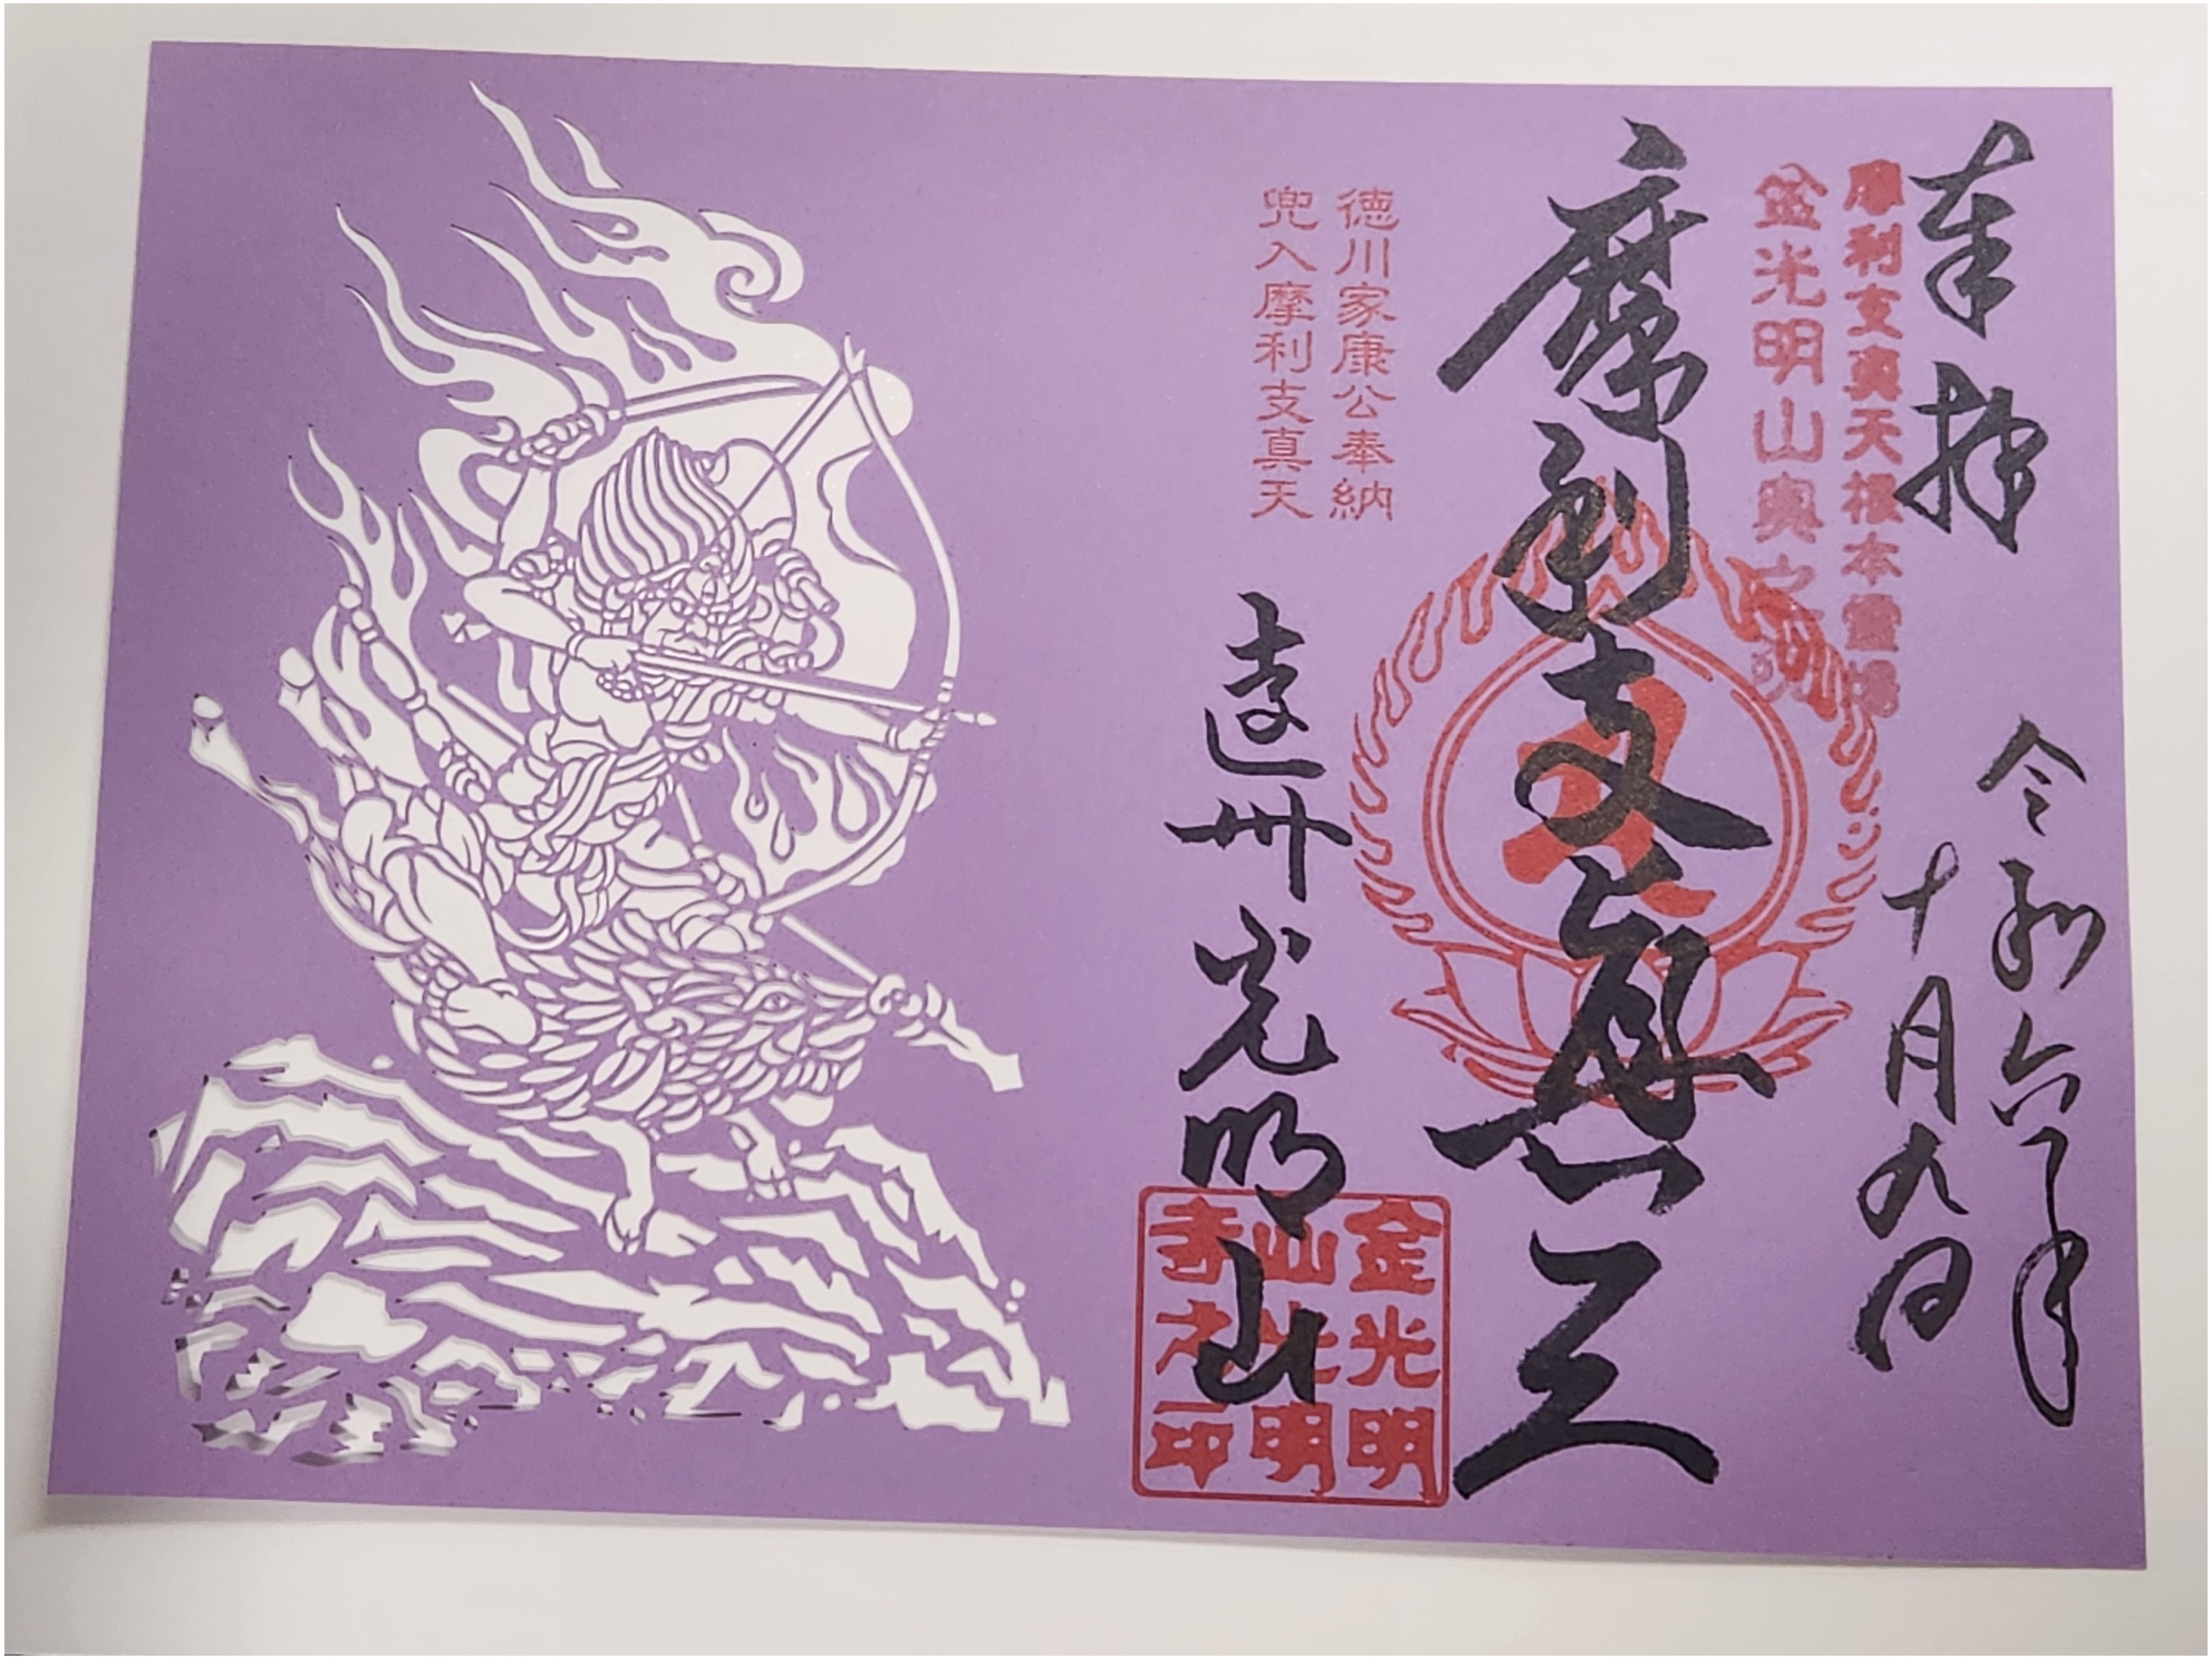 奉拝
令和六年
十月九日
摩利支真天根本霊場
金光明山奥之院
摩利支真天
徳川家康公奉納
兜入摩利支真天
遠州光明山
金光明
山光明
寺之印